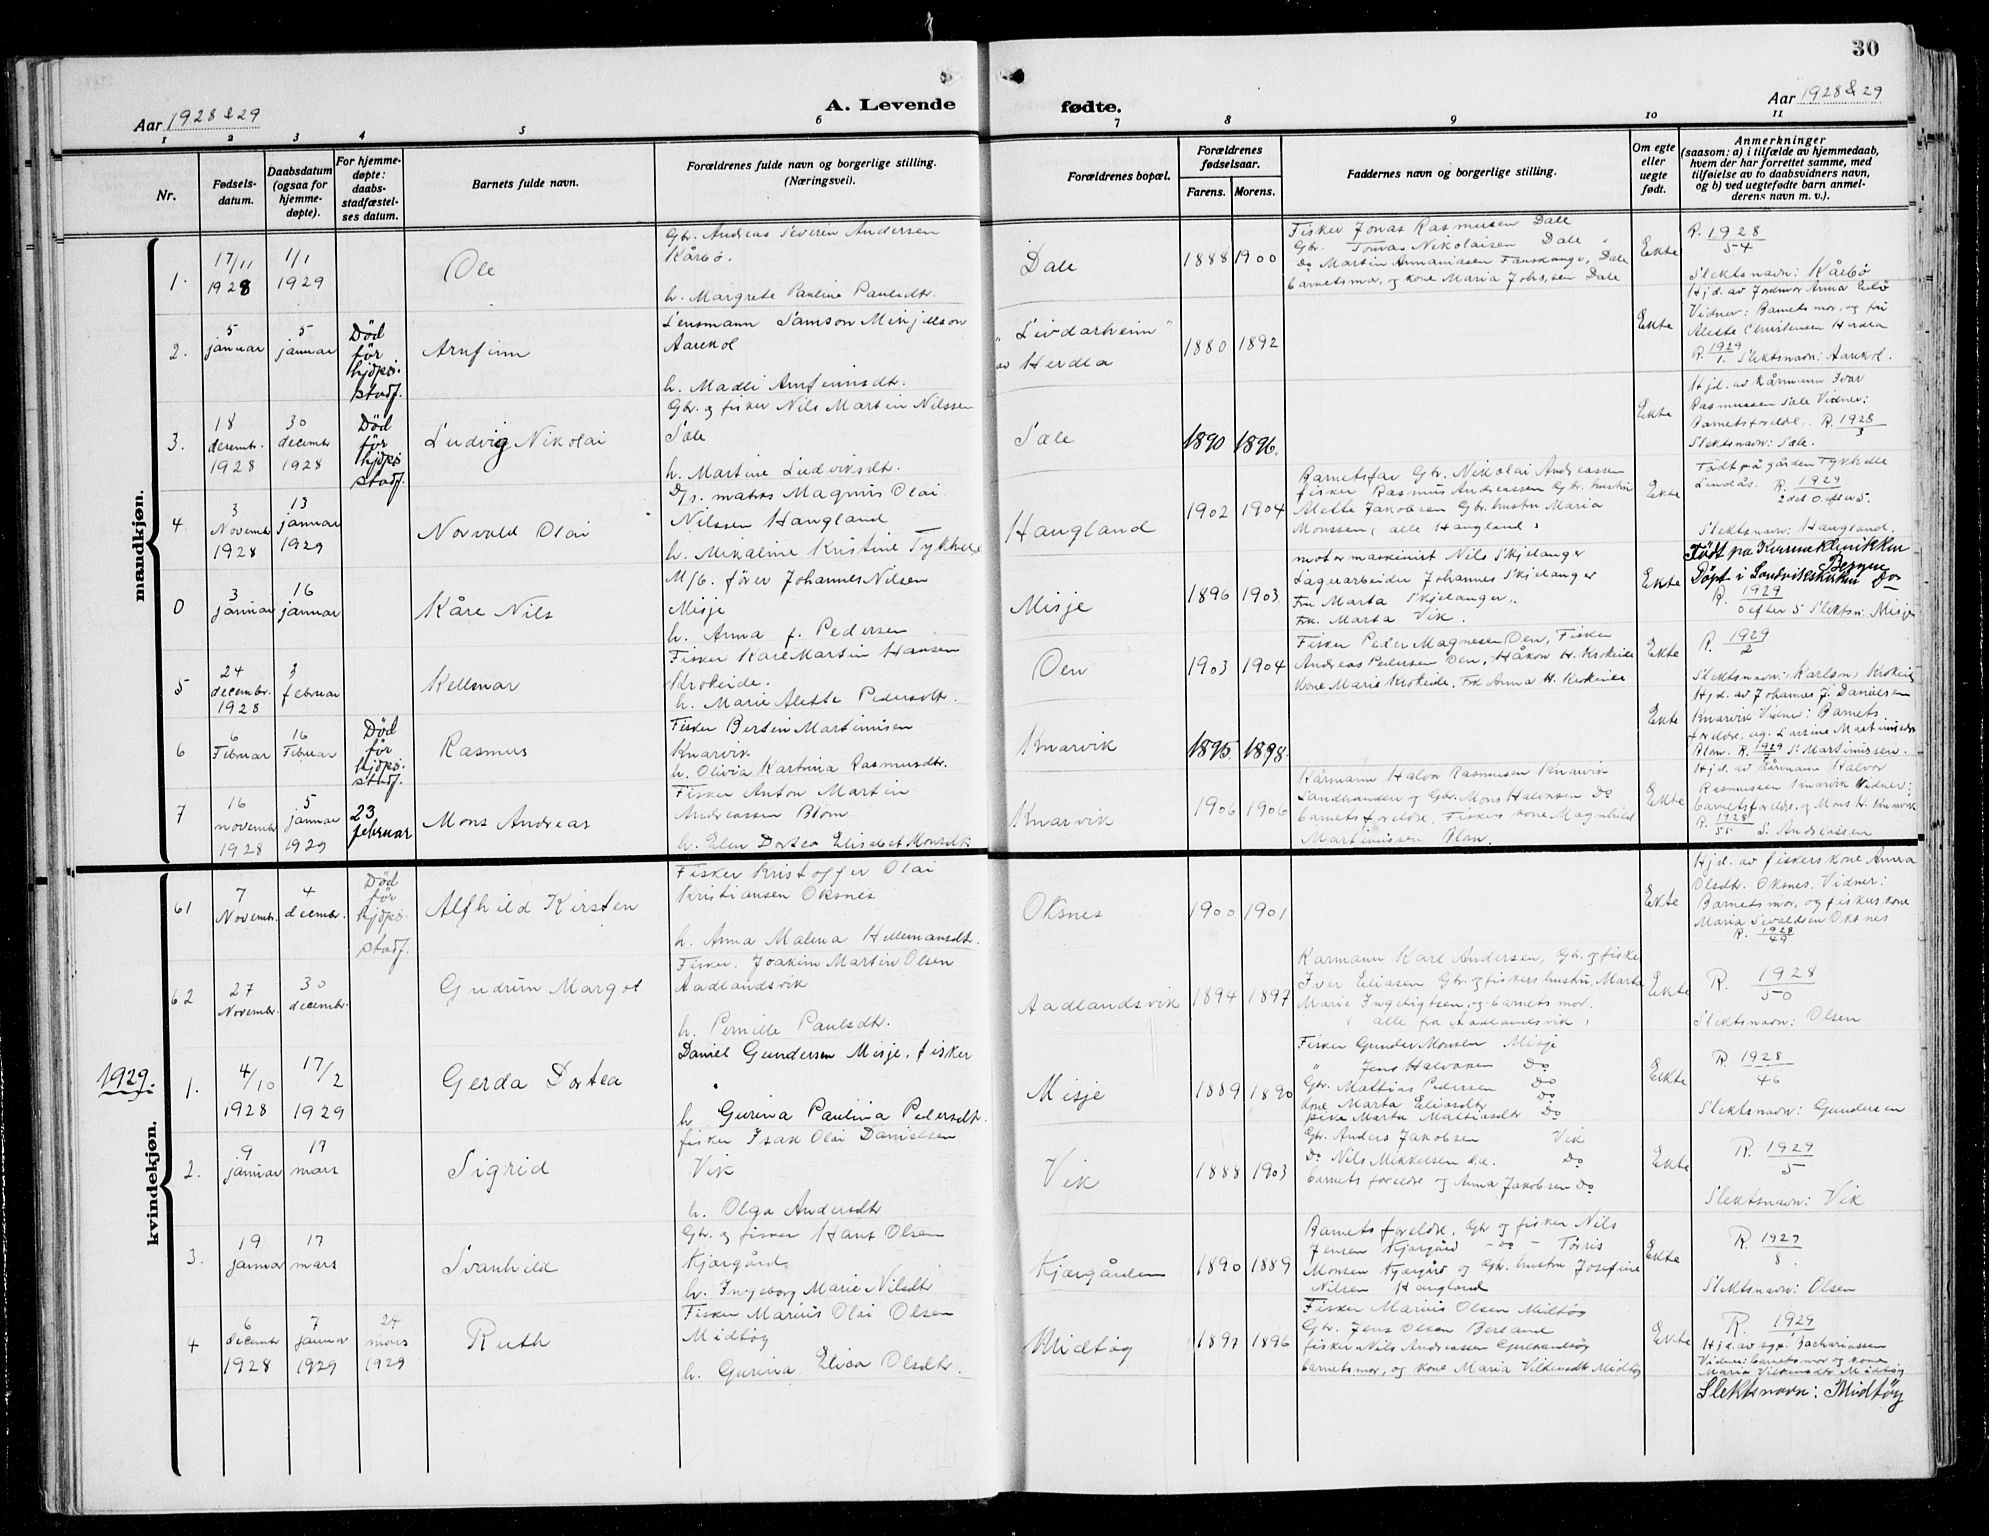 30
Aar 1928 & 29
A. Levende fødte.
Aar 1928 & 29
1 2 3 4 5 6 7 8 9 10 11
Nr.
Fødsels-
datum.
Daabsdatum
(ogsaa for
hjemme-
døpte).
For hjemme-
døpte:
daabs-
stadfæstel-
ses datum.
Barnets fulde navn.
Forældrenes fulde navn og borgerlige stilling.
(Næringsvei).
Forældrenes bopæl.
Forældrenes
fødselsaar.
Farens. Morens.
Faddernes navn og borgerlige stilling.
Om egte
eller
uegte
født.
Anmerkninger
(saasom: a) i tilfælde av hjemmedaab,
hvem der har forrettet samme, med
tilføielse av to daabsvidners navn,
og b) ved uegtefødte barn anmel-
derens navn m. v.).
mandkjøn.
1.
17/11
1928
1/1
1929
Ole
Gbr. Andreas Severin Andersen
Kårbø.
h. Margrete Pauline Paulsdtr.
Dale
1888 1900
Fisker Jonas Rasmussen Dale
Gbr. Tomas Nikolaisen Dale
Do Martin Annaniasen Fauskange, Dale
barnets mor, og kone Maria Johs,sen Dale
Ekte
R. 1928
54
Slektsnavn: Kårbø
2.
5
januar
5
januar
Død
før
hjdps.
stadf.
Arnfinn
Lensmann Samson Mikjelson
Aarekol
h. Madli Arnfinnsdtr.
"Livdarheim"
av Herdla
1880 1892
Ekte
Hjd. av Jordmor Anna
Vidner: Barnets mor, og fru
Alette Christensen Herdla
R. 1929
1. Slektsnavn: Aarekol.
3.
18
desembr.
1928
30
december
1928
Død
før
hjdps
stadf.
Ludvig Nikolai
Gbr. og fisker Nils Martin Nilssen
Sæle
h. Martine Ludviksdtr.
Sæle
1890 1896.
Ekte
Hjd. av Kårmann Ivar
Rasmussen Sæle Vidner:
Barnets foreldre. R. 1928
3
Slektsnavn: Sæle.
4
3
Novembr
1928
13
januar
1929
Norvald Olai
D/s. matros Magnus Olai
Nilssen Haugland
h. Mikaline Kristine Tykhelle
Haugland
1902 1904
Barnets far Gbr. Nikolai Andreassen
fisker Rasmus Andreassen Gbr. hustru
Alette Jakobsen Gbr. hustru Maria
Monssen, (alle Haugland)
Ekte
Født på gården Tykhelle
Lindås. R. 1929
2det 0. efter 5.
Slektsnavn: Haugland.
0
3
januar
16
januar
Kåre Nils
M/b. fører Johannes Nilsen
Misje
h. Anna f. Pedersen
Misje
1896 1903
motormaskinist Nils Skjelanger
Lagerarbeider Johannes Skjelanger
Fru Marta Skjelanger.
Frk. Marta Vik.
Ekte
Født på Kvinneklinikken
Bergen
Døpt i Sandvikskirken do
R. 1929
0 efter 5 Slektsn: Misje
5
24
decembr.
1928
3
februar
Kellmar
Fisker Karl Martin Hansen
Krokeide.
h. Marie Alette Pedersdtr.
Oen
1903 1904
Fisker Peder Magnesen Oen, Fisker
Andreas Pedersen Oen, Håkon H. Krokeide
Kone Marie Krokeide, Frk Anna H. Krokeide
Ekte
R. 1929
2
Slektsnavn: (Karlsen) Krokeide
6
6
Februar
16
Februar
Død
før
hjdps.
stadf.
Rasmus
Fisker Bertin Martinusen
Knarvik
h. Olivia Katrina Rasmusdtr.
Knarvik
1895. 1898.
Ekte
Hjd. av Johannes J. Danielsen
Knarvik Vidner: Barnets
foreldre, ug. Larsine Martinusdtr
Blom. R. 1929
7 S: Martinussen.
7
16
november
1928
5
januar
1929
23
februar
Mons Andreas
Fisker Anton Martin
Andreassen Blom
h. Elen Dortea Elisabet Monsdtr
Knarvik
1906 1906
Kårmann Halvor Rasmusen Knarvik
Landhandler og Gbr. Mons Halvorsen Do
barnets foreldre. Fiskers kone Magnhild
Martinussen Blom.
Ekte
Hjd. av Kårmann Halvor
Rasmussen Knarvik Vidner:
barnets foreldre, og Mons H. Knarvik
R. 1928
55. S. Andreassen
kvindekjøn.
61
7
Novembr.
4
decembr.
Død
før
hjdps.
stadf.
Alfhild Kirsten
Fisker Kristoffer Olai
Kristiansen Oksnes
h. Anna Malena Hellemansdtr.
Oksnes
1900 1901
Ekte
Hjd. av fiskers kone Anna
Olsdtr. Oksnes. Vidner:
Barnets mor, og fiskers kone
Maria Sivaldsen Oksnes
R. 1928
49
62
27
Novembr.
30
decembr.
Gudrun Margot
Fisker. Joakim Martin Olsen
Aadlandsvik
h. Pernille Paulsdtr.
Aadlandsvik
1894 1897
Karmann Karl Andersen, Gbr. og fisker
Iver Eliasen Gbr. og fiskers hustru, Marta
Marie Ingebrigtsen, og barnets mor.
(alle fra Aadlandsvik)
Ekte
R. 1928
50
Slektsnavn: Olsen
1929.
1.
4/10
1928
17/2
1929
Gerda Dortea
Daniel Gundersen Misje, fisker
h Gurina Paulina Pedersdtr.
Misje
1889 1890
Fisker Gunder Monsen Misje
" Jens Halvorsen Do
Gbr. Mattias Pedersen Do
kone Marta Eliasdtr Do
pike Marta Mattiasdtr Do
Ekte
R. 1928
46
Slektsnavn: Gundersen
2.
9
januar
17
mars
Sigrid
fisker Isak Olai Danielsen
Vik
h. Olga Andersdtr
Vik
1888 1903
Gbr. Anders Jakobsen Vik
Do Nils Mikkelsen d.e. Do
barnets foreldre og Anna Jakobsen Do
Ekte
R. 1929
5
Slektsnavn: Vik
3.
19
januar
17
mars
Svanhild
Gbr. og fisker Hans Olsen
Kjærgård
h. Ingeborg Marie Nilsdtr
Kjærgården
1890 1889
Barnets foreldre, Gbr og fisker Nils
Jensen Kjærgård - do - Tørris
Monsen Kjærgård og Gbr. hustru Josefine
Nilsen Haugland
Ekte
R. 1929
8.
Slektsnavn: Olsen
4
6
decembr
1928
7
januar
1929
24
mars
1929
Ruth
Fisker Marius Olai Olsen
Midtøy
h. Gurina Elisa Olsdtr.
Midtøy
1897 1896
Fisker Marius Olsen Midtøy
Gbr. Jens Olsen Berland
fisker Nils Andreassen Gulbrandsøy
barnets mor, og kone Maria Vilkensdtr Midtøy
Ekte
R. 1929
1
Hjd. av sgp. Zachariassen
Vidner: barnets mor og kone
Maria Vilkensdtr Midtøy
Slektsnavn: Midtöy